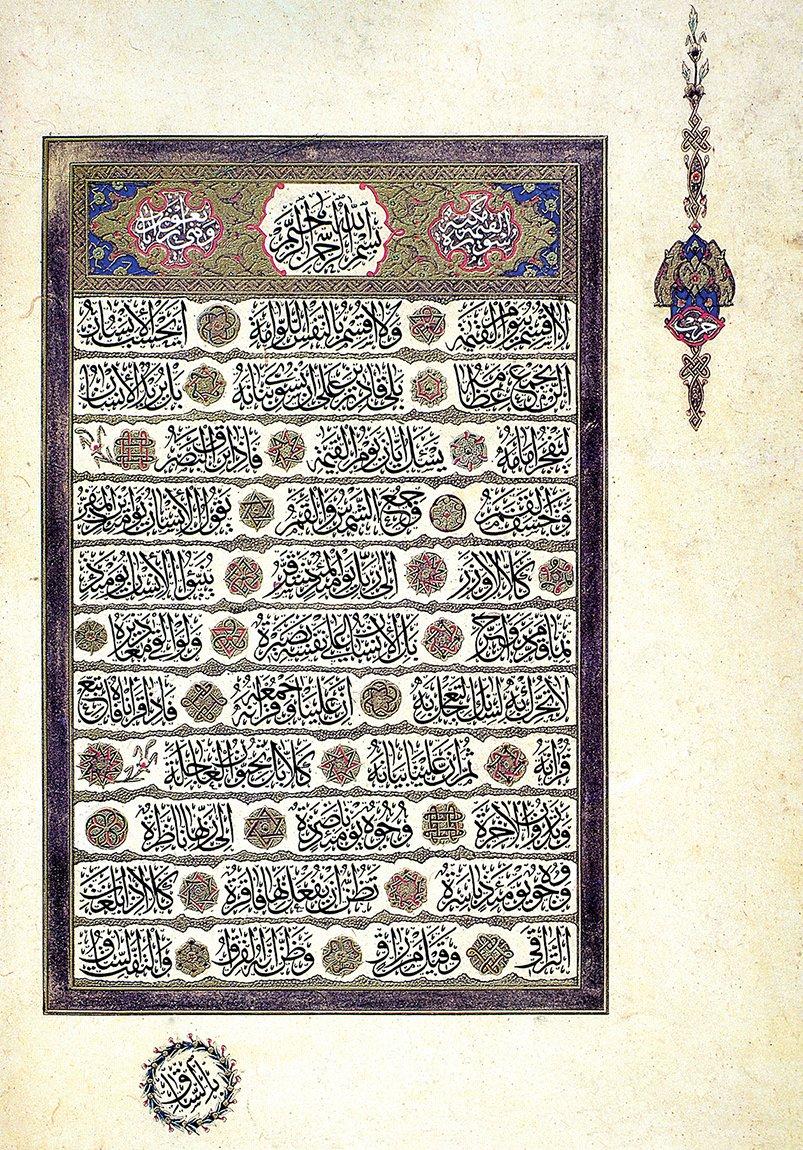 سورة القيمة مكية
بسم الله الرحمن الرحيم
حزب
لا اقسم بيوم القيمة ولا اقسم بالنفس اللوامة ايحسب الانسان
الن نجمع عظامه بلى قادرين على ان نسوي بنانه بل يريد الانسان
ليفجر امامه يسئل ايان يوم القيمة فاذا برق البصر
وخسف القمر وجمع الشمس والقمر يقول الانسان يومئذ اين المفر
كلا لا وزر الى ربك يومئذ المستقر ينبؤا الانسان يومئذ
بما قدم واخر بل الانسان على نفسه بصيرة ولو القى معاذيره
لا تحرك به لسانك لتعجل به ان علينا جمعه وقرانه فاذا قراناه فاتبع
قرانه ثم ان علينا بيانه كلا بل تحبون العاجلة
وتذرون الاخرة وجوه يومئذ ناضرة الى ربها ناظرة
ووجوه يومئذ باسرة تظن ان يفعل بها فاقرة كلا اذا بلغت
التراقي وقيل من راق وظن انه الفراق والتفت الساق
بالساق